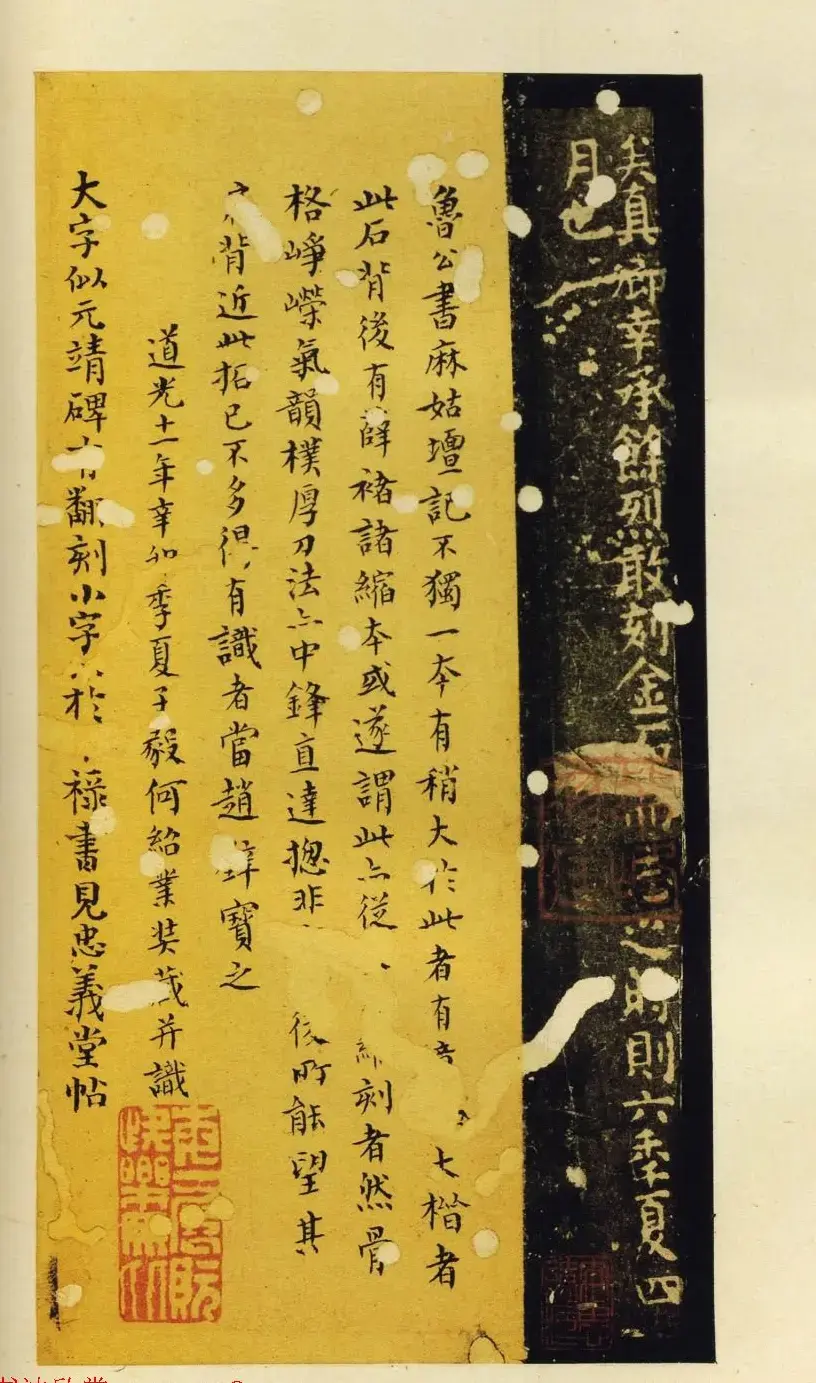 矣真卿幸承餘烈敢刻金石而志之時則六年夏四
月也
魯公書麻姑壇記不獨一本有稍大於此者有大楷者
此石背後有薛褚諸縮本或遂謂此亦從刻者然骨
格崢嶸氣韻樸厚刀法亦中鋒直達摠非後所能望其
背近此拓已不多得有識者當趙璧寶之
道光十一年辛卯季夏子毅何紹業裝成并識
大字似元靖碑有翻刻小字於祿書見忠義堂帖